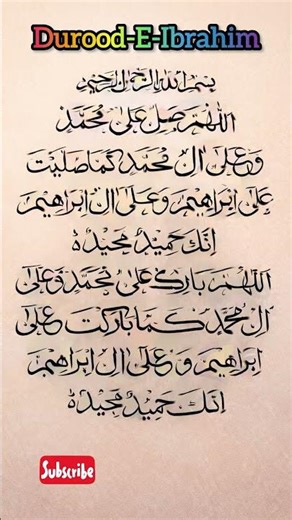 Durood-E-Ibrahim
بسم الله الرحمن الرحيم
اللهم صل على محمد
وعلى ال محمد كما صليت
على ابراهيم وعلى ال ابراهيم
انك حميد مجيد
اللهم بارك على محمد وعلى
ال محمد كما باركت على
ابراهيم وعلى ال ابراهيم
انك حميد مجيد
Subscribe